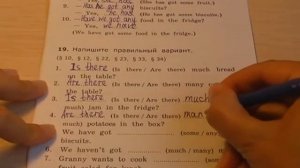 (She has got some fruit.)
9. – Has he got any biscuits?
– Yes, he has. (He has got some biscuits.)
10. – Have we got any food in the fridge?
– Yes, we have.
(We have got some food in the fridge.)
19. Напишите правильный вариант.
(§ 10, § 12, § 22, § 23, § 33, § 34)
1. Is there (Is there / Are there) much bread
on the table?
2. Are there (Is there / Are there) many
the table?
3. Is there (Is there / Are there) much
much) jam in the fridge?
4. Are there (Is there / Are there) man
much) potatoes in the box?
5. We have got (some / any)
biscuits.
6. We haven't got (many /
7. Granny wants to cook